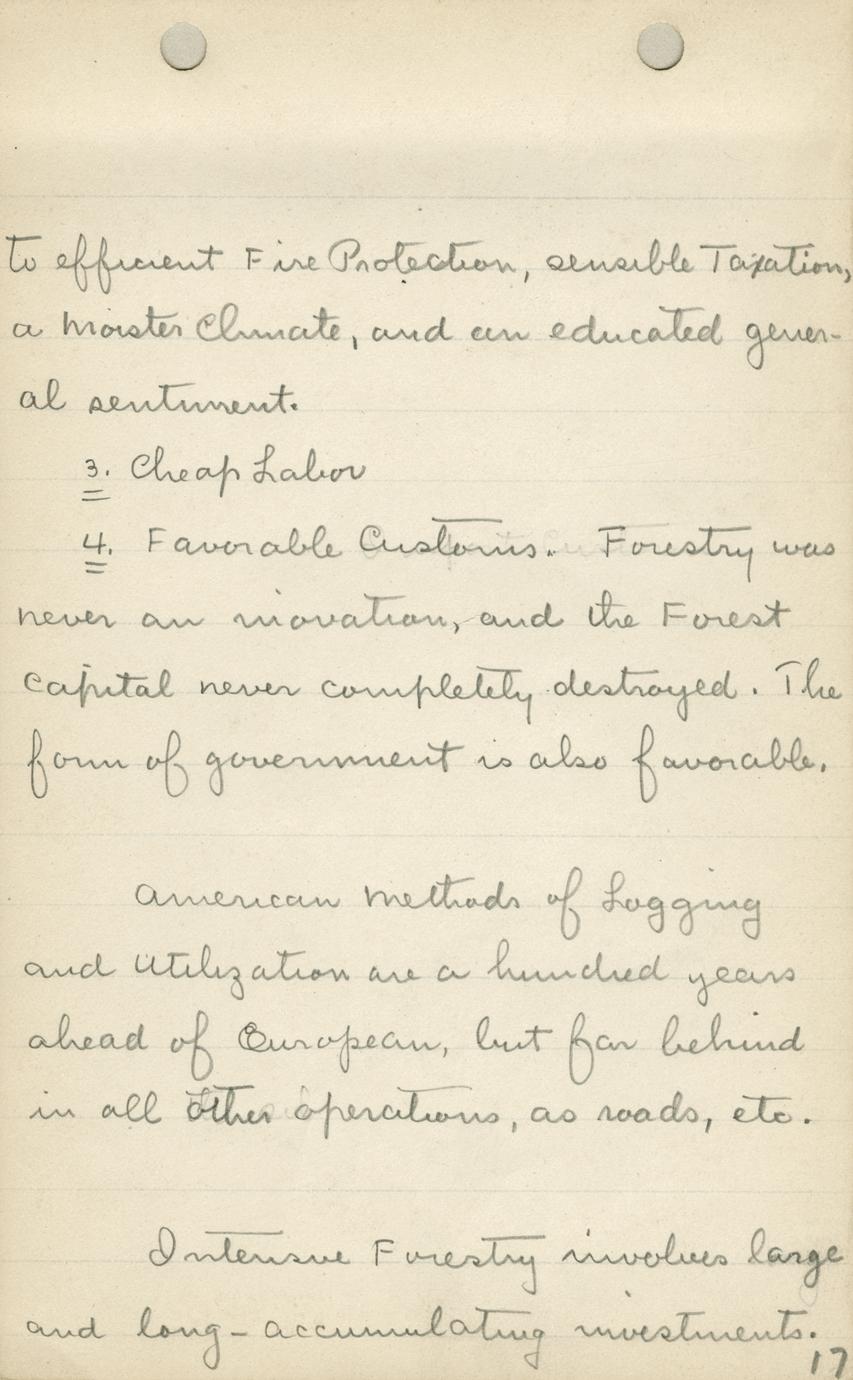 to efficient Fire Protection, sensible Taxation,
a Moister Climate, and an educated gener-
al sentiment.
3. Cheap Labor
4. Favorable Customs. Forestry was
never an inovation, and the Forest
Capital never completely destroyed. The
form of government is also favorable.
American Methods of Logging
and Utilization are a hundred years
ahead of European, but far behind
in all other operations, as roads, etc.
Intensive Forestry involves large
and long-accumulating investments.
17